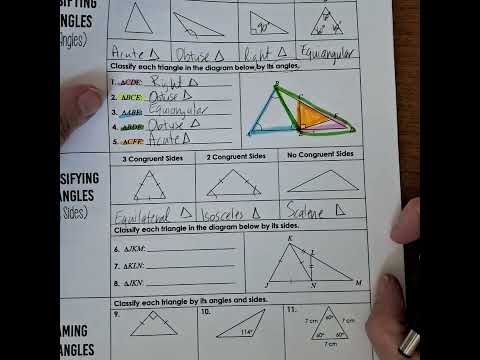 SIFYING
ANGLES
(Angles)
90°
60°
60°
60°
Acute △ Obtuse △ Right △ Equiangular
Classify each triangle in the diagram below by its angles.
1. △CDE: Right △
2. △BCE: Obtuse △
3. △ABE: Equiangular
4. △BDE: Obtuse △
5. △CFE: Acute △
B
3 Congruent Sides 2 Congruent Sides No Congruent Sides
SIFYING
ANGLES
Sides)
Equilateral △ Isosceles △ Scalene △
Classify each triangle in the diagram below by its sides.
6. △JKM:
7. △KLN:
8. △JKN:
K
L
J N M
Classify each triangle by its angles and sides.
AMING
ANGLES
9. 10. 11.
114°
7 cm 60° 7 cm
60° 60°
7 cm